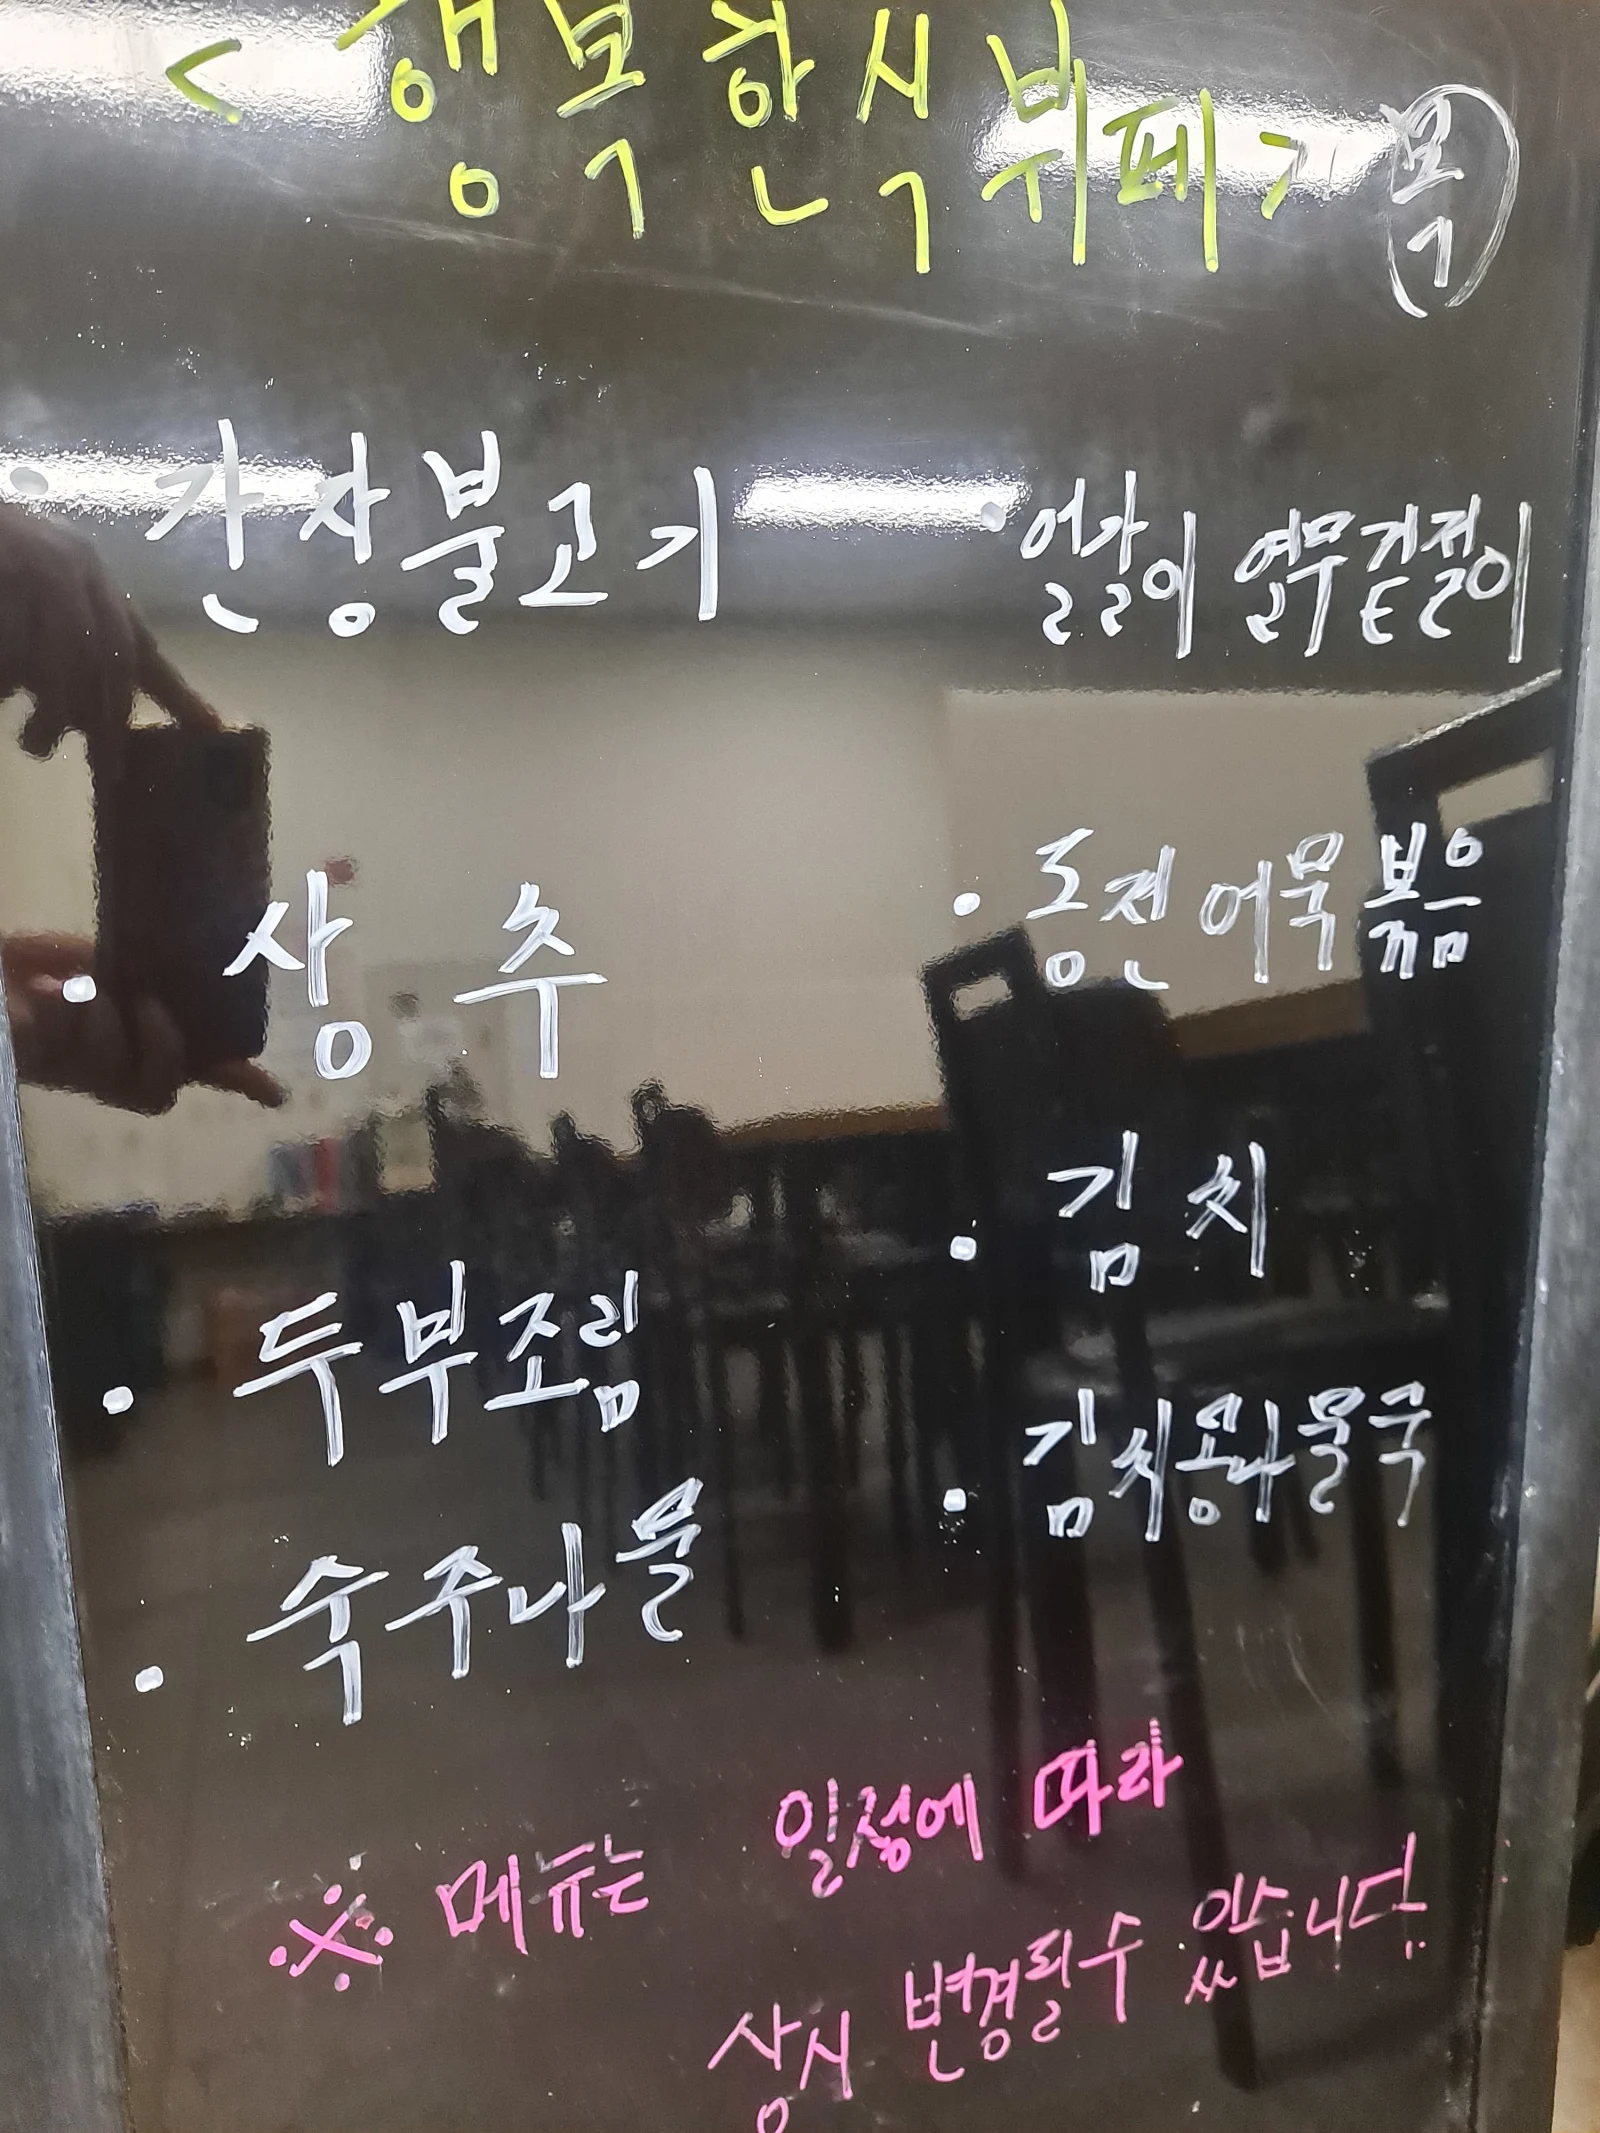 <행복한식뷔페> 목
· 간장불고기
· 얼갈이 열무겉절이
· 상추
· 동전어묵볶음
· 두부조림
· 김치
· 숙주나물
· 김치콩나물국
※ 메뉴는 일정에 따라
상시 변경될수 있습니다.